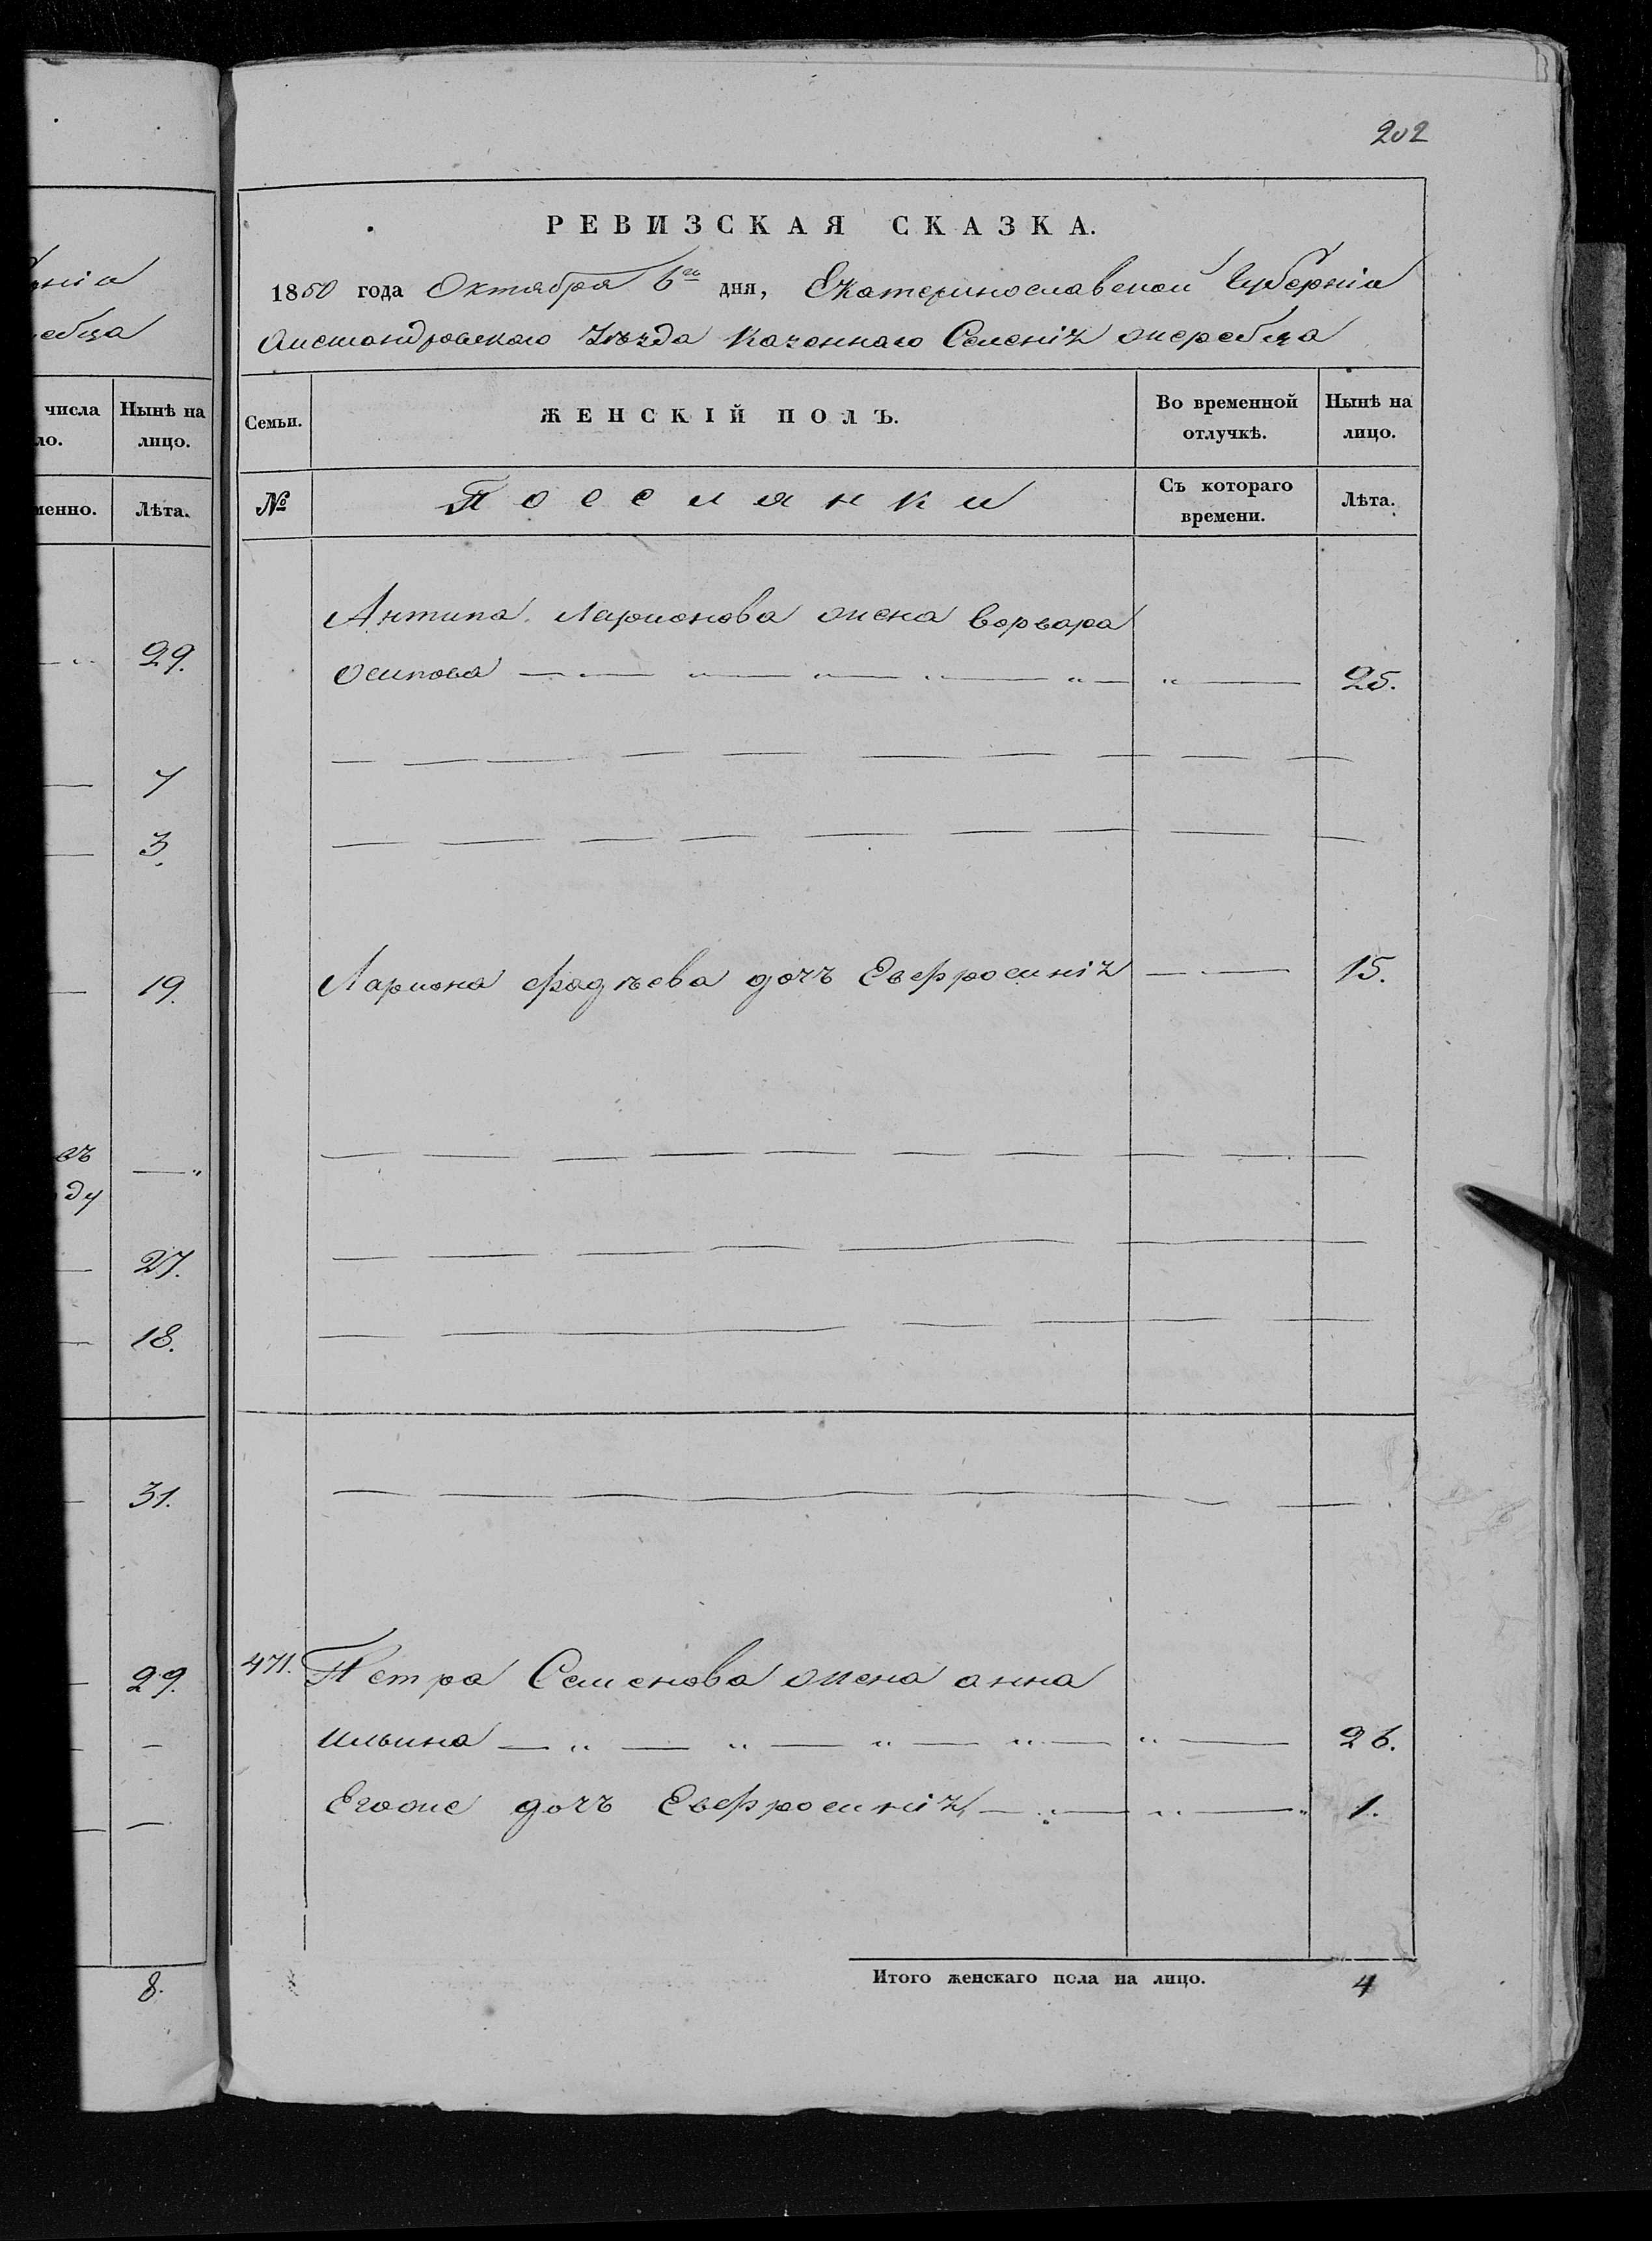 202
РЕВИЗСКАЯ СКАЗКА.
1850 года Октября 6го дня, Екатеринославской Губерніи
Александровскаго Уѣзда Казеннаго Селенія жеребца
Семьи.
ЖЕНСКІЙ ПОЛЪ.
Во временной отлучкѣ.
Нынѣ на лицо.
№
Поселянки
Съ котораго времени.
Лѣта.
Антипа Ларионова жена Варвара
Осипова 25.
Лариона Фадѣева дочъ Евфросинія 15.
471. Петра Семенова жена анна
Ильина 26.
Егоже дочъ Евфросинія 1.
Итого женскаго пола на лицо. 4
ніи
ебца
числа
ло.
Нынѣ на
лицо.
менно.
Лѣта.
29.
7
3.
19.
ду
27.
18.
31.
29.
8.